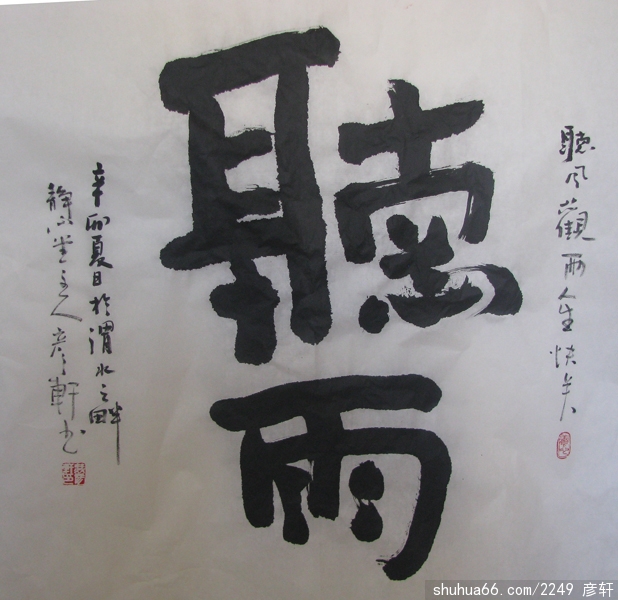 聽风觀雨人生快矣
聽雨
辛卯夏日於渭水之畔
静心堂主人彦軒书
shuhua66.com/2249 彦轩